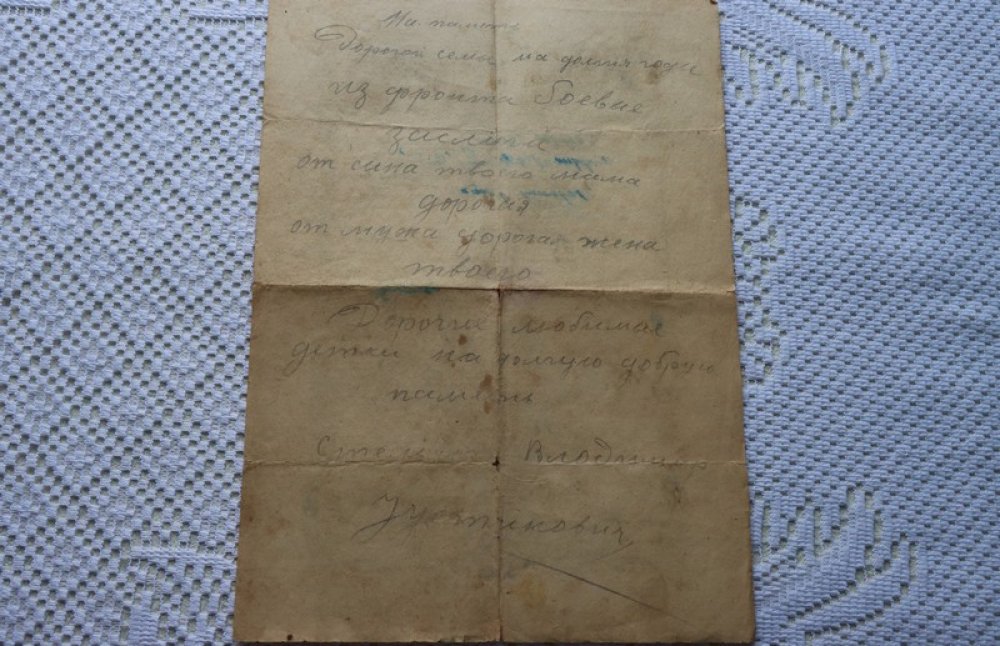 На память
Дорогой семи на долгия годы
из фронта боевые
заслуги
от сина твоего мама
дорогая
от мужа дорогая жена
твоего
Дорогие любимые
детки на долгую добрую
память
Владимир